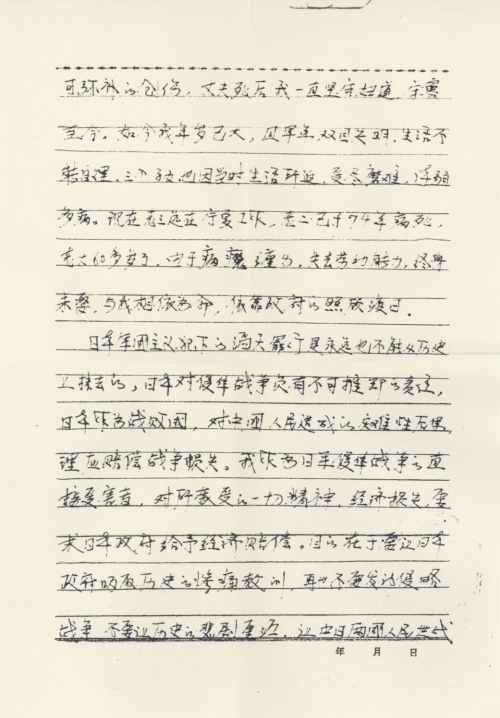 可弥补的创伤，丈夫死后我一直坚守妇道，守寡
至今。如今我年岁已大，且早年双目失明，生活不
能自理，三个孩也因当时生活所迫，受尽磨难，体弱
多病。现在老三远在宁夏工队，老二已于74年病死，
老大60多岁了，由于病魔缠身，失去劳动能力，终身
未娶，与我相依为命，依靠政府的照顾渡日。
日本军国主义犯下的滔天罪行是永远也不能从历史
上抹去的，日本对侵华战争负有不可推卸的责任，
日本作为战败国，对中国人民造成的灾难性后果，
理应赔偿战争损失。我作为日军侵华战争的直
接受害者，对所蒙受的一切精神，经济损失，要
求日本政府给予经济赔偿。目的在于要让日本
政府吸取历史的惨痛教训，再也不要发动侵略
战争，不要让历史的悲剧重演，让中日两国人民世代
年 月 日